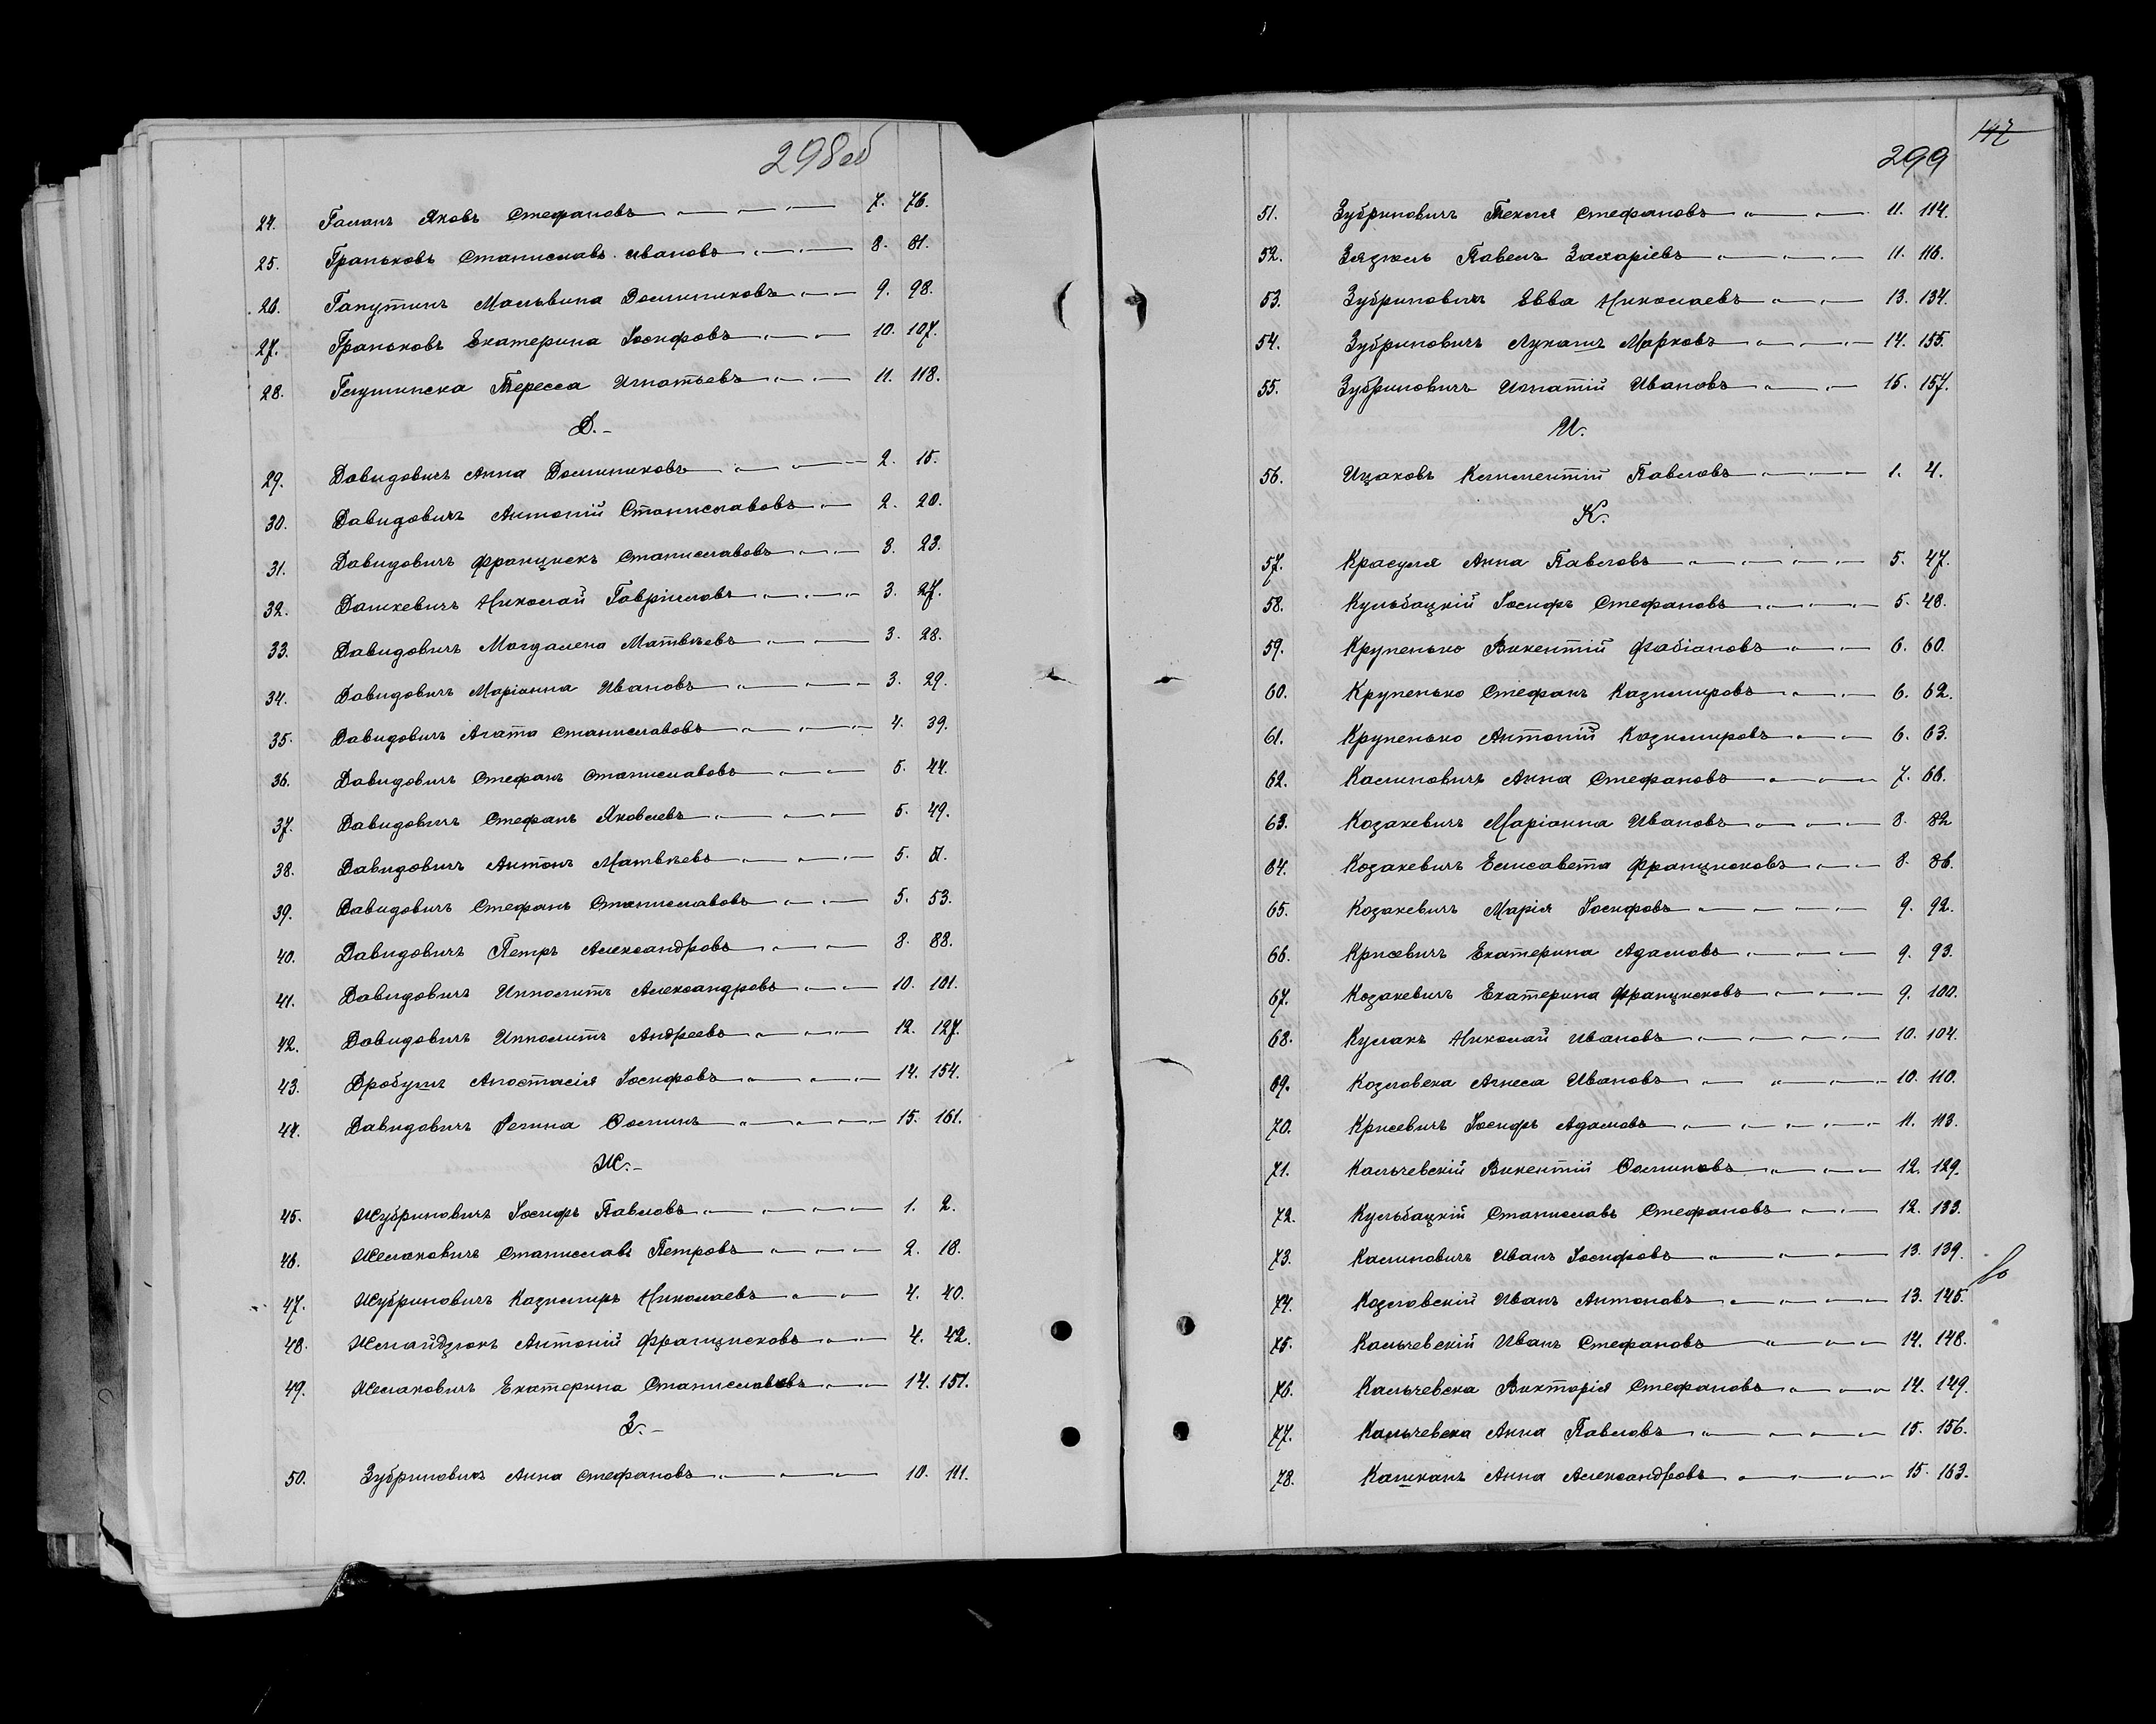 298об
24. Галанъ Яковъ Стефановъ 7. 76.
25. Граньковъ Станиславъ Ивановъ 8. 81.
26. Гапутинъ Мальвина Доминиковъ 9. 98.
27. Граньковъ Екатерина Іосифовъ 10. 107.
28. Глушинска Тересса Игнатьевъ 11. 118.
Д.-
29. Давидовичъ Анна Доминиковъ 2. 15.
30. Давидовичъ Антоній Станиславовъ 2. 20.
31. Давидовичъ Францискъ Станиславовъ 3. 23.
32. Дашкевичъ Николай Гавріиловъ 3. 27.
33. Давидовичъ Магдалена Матвѣевъ 3. 28.
34. Давидовичъ Маріанна Ивановъ 3. 29.
35. Давидовичъ Агата Станиславовъ 4. 39.
36. Давидовичъ Стефанъ Станиславовъ 5. 44.
37. Давидовичъ Стефанъ Яковлевъ 5. 49.
38. Давидовичъ Антонъ Матвѣевъ 5. 51.
39. Давидовичъ Стефанъ Станиславовъ 5. 53.
40. Давидовичъ Петръ Александровъ 8. 88.
41. Давидовичъ Ипполитъ Александровъ 10. 101.
42. Давидовичъ Ипполитъ Андреевъ 12. 127.
43. Дробушъ Анастасія Іосифовъ 14. 154.
44. Давидовичъ Регина Осипинъ 15. 161.
Ж.-
45. Жубриновичъ Іосифъ Павловъ 1. 2.
46. Желаковичъ Станиславъ Петровъ 2. 18.
47. Жубриновичъ Казимиръ Николаевъ 4. 40.
48. Жемайдзюкъ Антоній Францисковъ 4. 42.
49. Желаковичъ Екатерина Станиславовъ 14. 151.
З.-
50. Зубриновичъ Анна Стефановъ 10. 111.
147
299
51. Зубриновичъ Текля Стефановъ 11. 114.
52. Зязюль Павелъ Захаріевъ 11. 116.
53. Зубриновичъ Евва Николаевъ 13. 134.
54. Зубриновичъ Лукашъ Марковъ 14. 155.
55. Зубриновичъ Игнатій Ивановъ 15. 157.
И.
56. Ицаковъ Климентій Павловъ 1. 4.
К.
57. Красуля Анна Павловъ 5. 47.
58. Кульбацкій Іосифъ Стефановъ 5. 48.
59. Крупенько Викентій Фабіановъ 6. 60.
60. Крупенько Стефанъ Казимировъ 6. 62.
61. Крупенько Антоній Казимировъ 6. 63.
62. Калиновичъ Анна Стефановъ 7. 66.
63. Козакевичъ Маріанна Ивановъ 8. 82
64. Козакевичъ Елисавета Францисковъ 8. 86.
65. Козакевичъ Марія Іосифовъ 9. 92.
66. Крисевичъ Екатерина Адамовъ 9. 93.
67. Козакевичъ Екатерина Францисковъ 9. 100.
68. Кулакъ Николай Ивановъ 10. 104.
69. Козловска Агнеса Ивановъ 10. 110.
70. Крисевичъ Іосифъ Адамовъ 11. 113.
71. Кальчевскій Викентій Осиповъ 12. 129.
72. Кульбацкій Станиславъ Стефановъ 12. 133.
73. Калиновичъ Иванъ Іосифовъ 13. 139.
74. Козловскій Иванъ Антоновъ 13. 145.
75. Кальчевскій Иванъ Стефановъ 14. 148.
76. Кальчевска Викторія Стефановъ 14. 149.
77. Кальчевска Анна Павловъ 15. 156.
78. Кашканъ Анна Александровъ 15. 163.